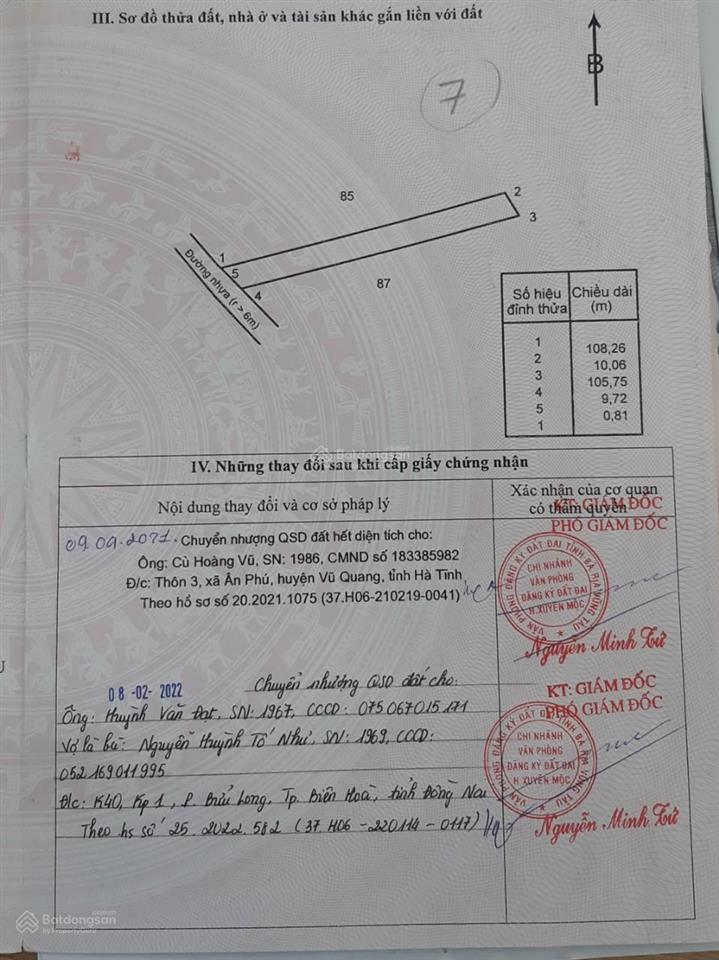 III. Sơ đồ thửa đất, nhà ở và tài sản khác gắn liền với đất
7
B
85
2
3
1
5
4
87
Đường nhựa (r > 6m)
Số hiệu đỉnh thửa
Chiều dài (m)
1
108,26
2
10,06
3
105,75
4
9,72
5
0,81
1
IV. Những thay đổi sau khi cấp giấy chứng nhận
Nội dung thay đổi và cơ sở pháp lý
Xác nhận của cơ quan
có thẩm quyền
09.09.2021. Chuyển nhượng QSD đất hết diện tích cho:
Ông: Cù Hoàng Vũ, SN: 1986, CMND số 183385982
Đ/c: Thôn 3, xã Ân Phú, huyện Vũ Quang, tỉnh Hà Tĩnh
Theo hồ sơ số 20.2021.1075 (37.H06-210219-0041)
KT: GIÁM ĐỐC
PHÓ GIÁM ĐỐC
VĂN PHÒNG ĐĂNG KÝ ĐẤT ĐAI TỈNH BÀ RỊA VŨNG TÀU
CHI NHÁNH
VĂN PHÒNG
ĐĂNG KÝ ĐẤT ĐAI
H.XUYÊN MỘC
Nguyễn Minh Tử
08-02-2022 Chuyển nhượng QSD đất cho:
Ông: Huỳnh Văn Đạt, SN: 1967, CCCD: 075067015171
Vợ là bà: Nguyễn Huỳnh Tố Như, SN: 1969, CCCD:
052169011995
Đ/c: K40, Kp 1, P. Bửu Long, Tp. Biên Hoà, tỉnh Đồng Nai
Theo hs số 25.2022.582 (37.H06-220114-0117)
KT: GIÁM ĐỐC
PHÓ GIÁM ĐỐC
VĂN PHÒNG ĐĂNG KÝ ĐẤT ĐAI TỈNH BÀ RỊA VŨNG TÀU
CHI NHÁNH
VĂN PHÒNG
ĐĂNG KÝ ĐẤT ĐAI
H.XUYÊN MỘC
Nguyễn Minh Tử
Batdongsan
Batdongsan
by PropertyGuru